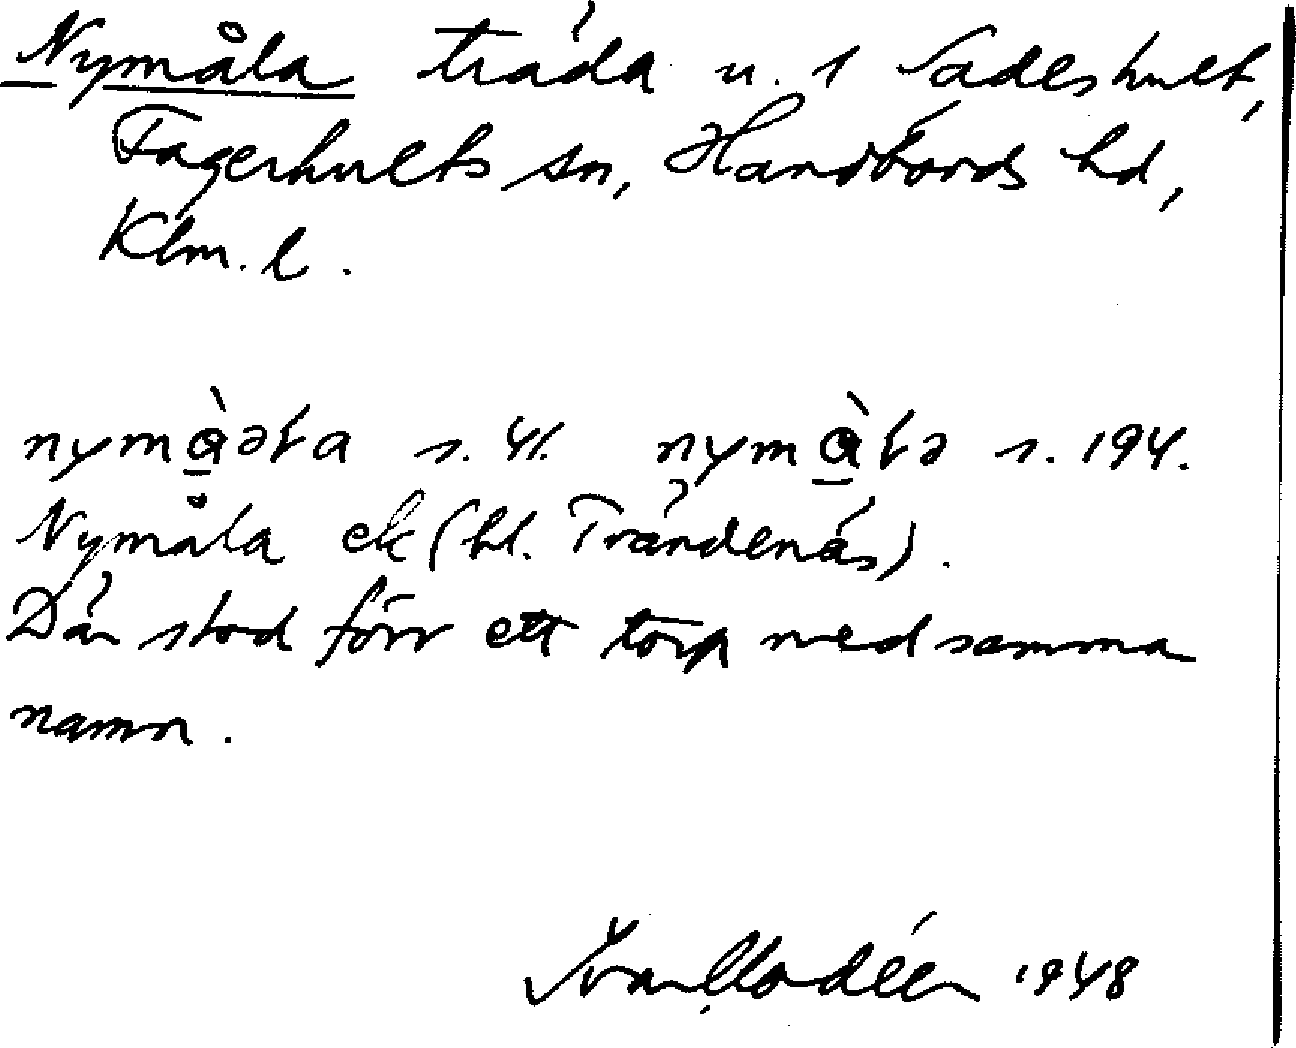 Nymåla träda u. 1 Sadeshult,
Fagerhults sn, Handbörds hd,
Klm. l.
nymàəɫa s. 41. nymàɫə s. 194.
Nymåla ek (bl. Trändenäs).
Där stod förr ett torp med samma
namn.
Ivar Modéer 1948